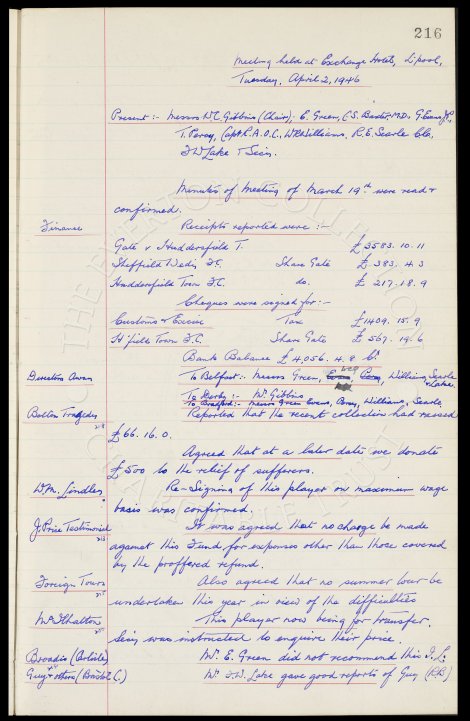 216
Meeting held at Exchange Hotel, L'pool,
Tuesday, April 2, 1946
Present :- Messrs W.C. Gibbins (Chair), E. Green, C.S. Baxter M.D., G. Evans J.P.,
T. Percy, Capt. A.O.C., W.R. Williams, R.E. Searle Clr.,
J.W. Lake & Secy.
Minutes of Meeting of March 19th were read &
confirmed.
Finance Receipts reported were :-
Gate v Huddersfield T. £3583.10.11
Sheffield Wedy F.C. Share Gate £ 383.4.3
Huddersfield Town F.C. do. £ 217.18.9
Cheques were signed for :-
Customs & Excise Tax £1409.15.9
H'field Town F.C. Share Gate £ 567.19.6
Bank Balance £4,056.4.8 Cr
Directors Away To Belfast :- Messrs Green, Williams, Searle
& Lake.
To Derby :- Mr Gibbins
To Bradford :- Messrs Green Evans, Percy, Williams, Searle,
Bolton Tragedy Reported that the recent collection had raised
218
£66.16.0.
Agreed that at a later date we donate
£500 to the relief of sufferers.
W.M. Lindley Re-Signing of this player on maximum wage
basis was confirmed.
J. Price Testimonial It was agreed that no charge be made
213
against this Fund for expenses other than those covered
by the proffered refund.
Foreign Tours Also agreed that no summer tour be
undertaken this year in view of the difficulties
McIlhatton This player now being for transfer,
Secy was instructed to enquire their price.
Broadis (Carlisle) Mr. E. Green did not recommend this I.L.
Guy & others (Bristol C.) Mr J.W. Lake gave good reports of Guy (R.B.)